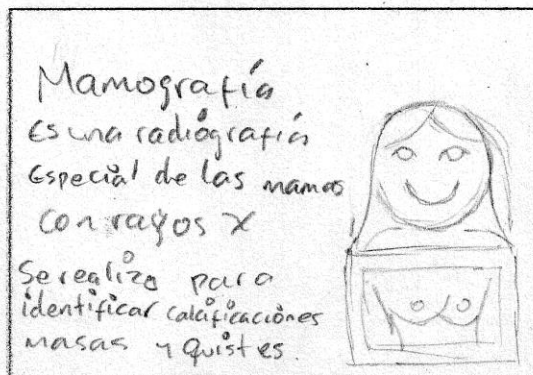 Mamografía
Es una radiógrafía
Especial de las mamas
Con rayos X
Se realiza para
identificar calcificaciónes
masas y quistes.